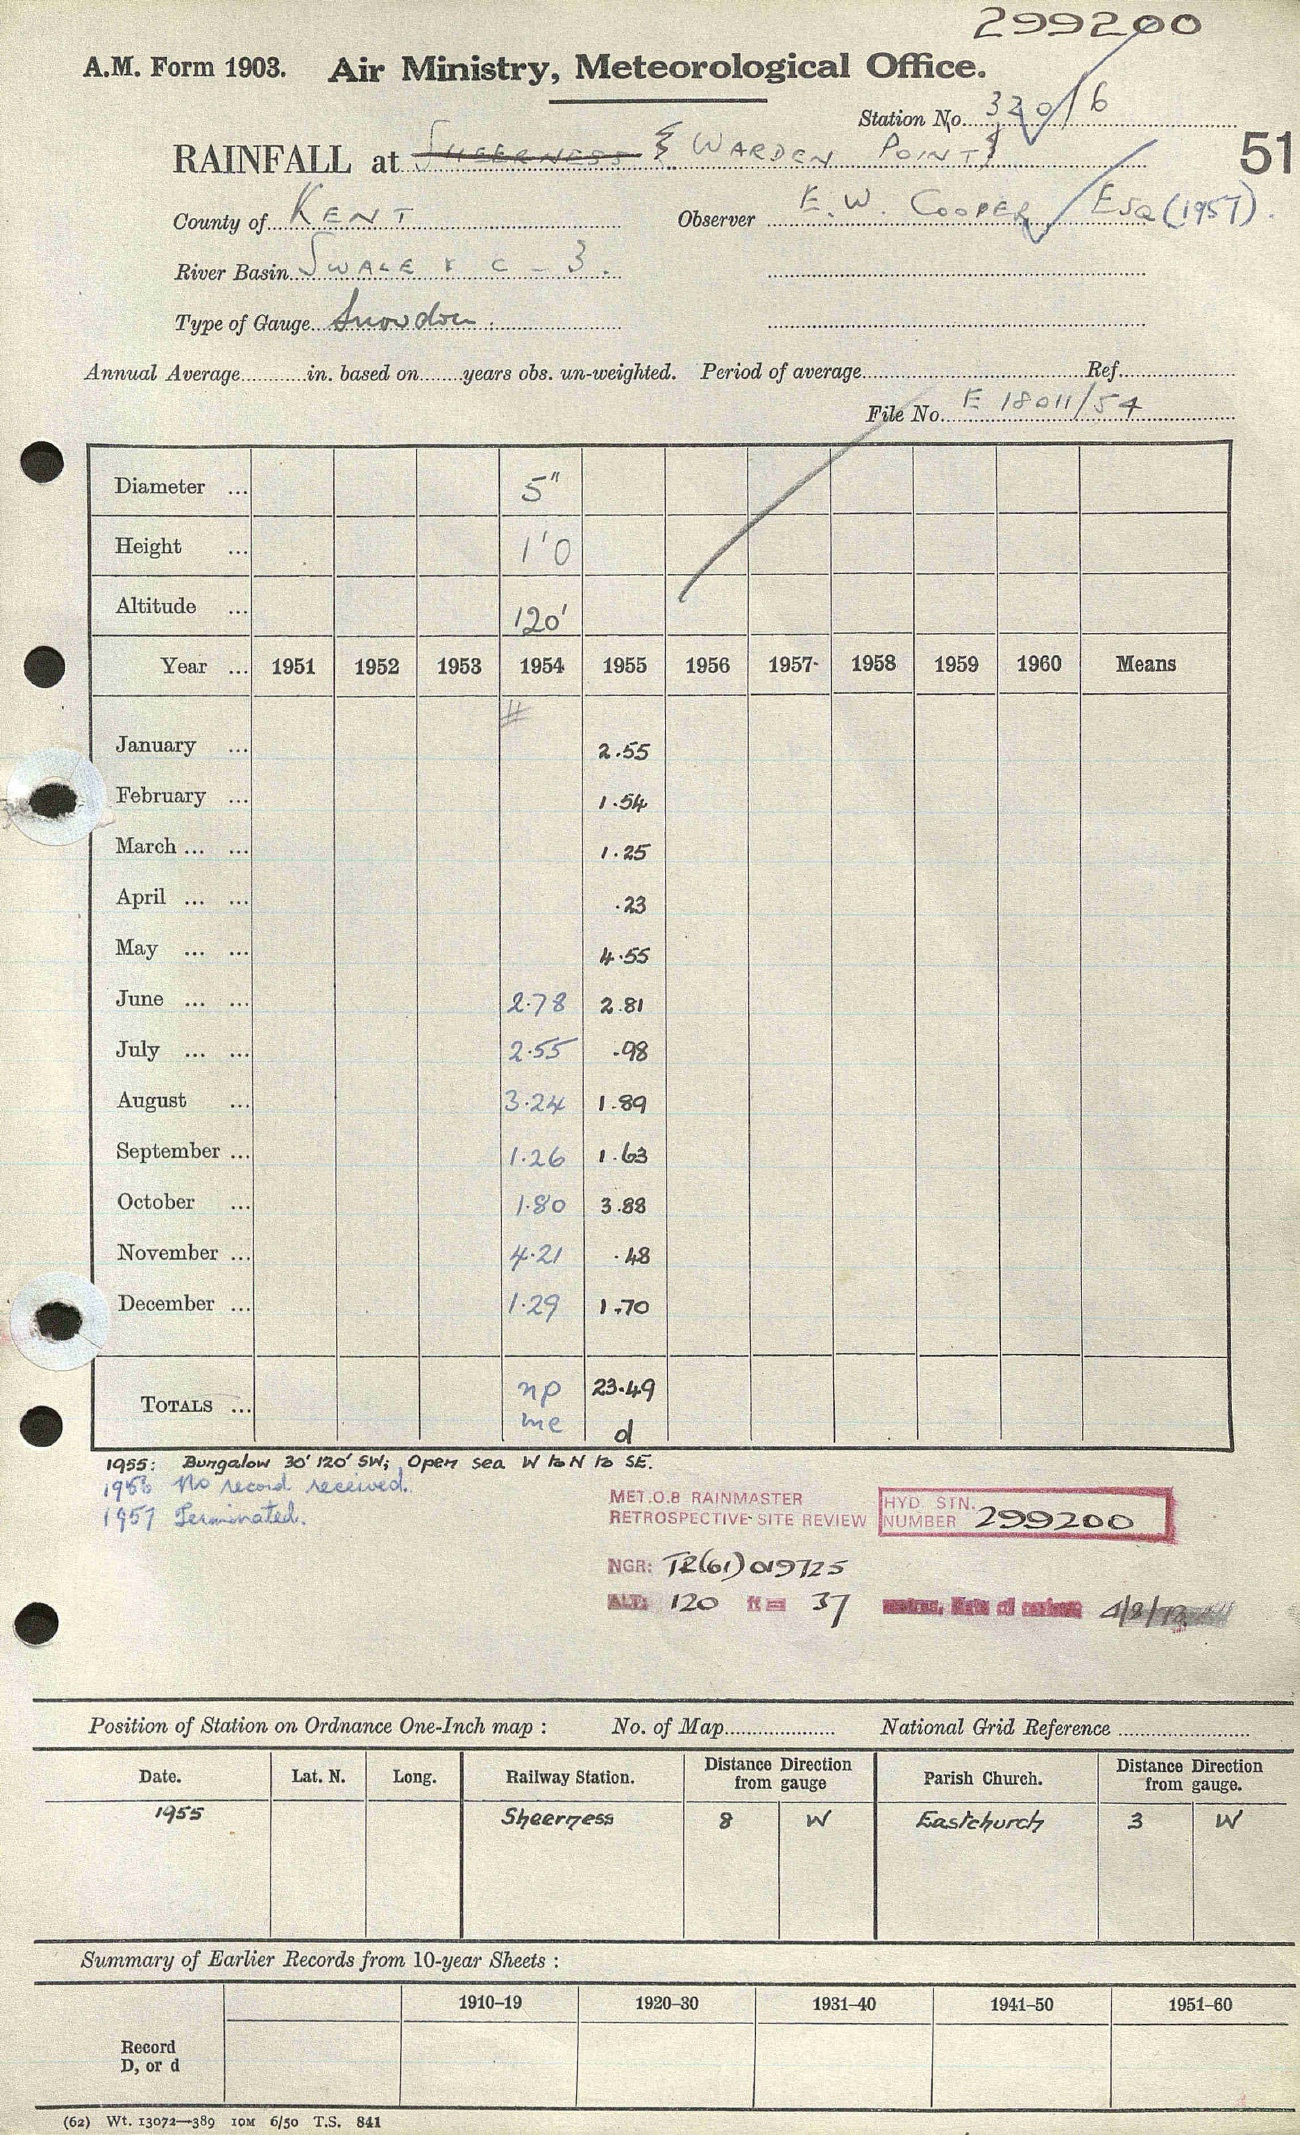 299200
A.M. Form 1903. Air Ministry, Meteorological Office.
Station No. 320/6
51
RAINFALL at SHEERNESS { WARDEN POINT }
County of KENT Observer E. W. COOPER ESQ (1957).
River Basin SWALE & C - 3.
Type of Gauge Snowdon.
Annual Average............in. based on.......years obs. un-weighted. Period of average............Ref............
File No. E 18011/54
Diameter ... 5"
Height ... 1'0
Altitude ... 120'
Year ... 1951 1952 1953 1954 1955 1956 1957 1958 1959 1960 Means
#
January ... 2.55
February ... 1.54
March ... ... 1.25
April ... ... .23
May ... ... 4.55
June ... ... 2.78 2.81
July ... ... 2.55 .98
August ... 3.24 1.89
September ... 1.26 1.63
October ... 1.80 3.88
November ... 4.21 .48
December ... 1.29 1.70
TOTALS ... np 23.49
me d
1955: Bungalow 30' 120' SW; Open sea W to N to SE.
1956 No record received.
1957 Terminated.
MET.O.8 RAINMASTER
RETROSPECTIVE SITE REVIEW
HYD. STN.
NUMBER 299200
NGR: TR(61)019725
ALT: 120 ft = 37 metres, Date of review 4/8/78
Position of Station on Ordnance One-Inch map : No. of Map.................... National Grid Reference ........................
Date. Lat. N. Long. Railway Station. Distance Direction from gauge Parish Church. Distance Direction from gauge.
1955 Sheerness 8 W Eastchurch 3 W
Summary of Earlier Records from 10-year Sheets :
1910–19 1920–30 1931–40 1941–50 1951–60
Record
D, or d
(62) Wt. 13072—389 10M 6/50 T.S. 841